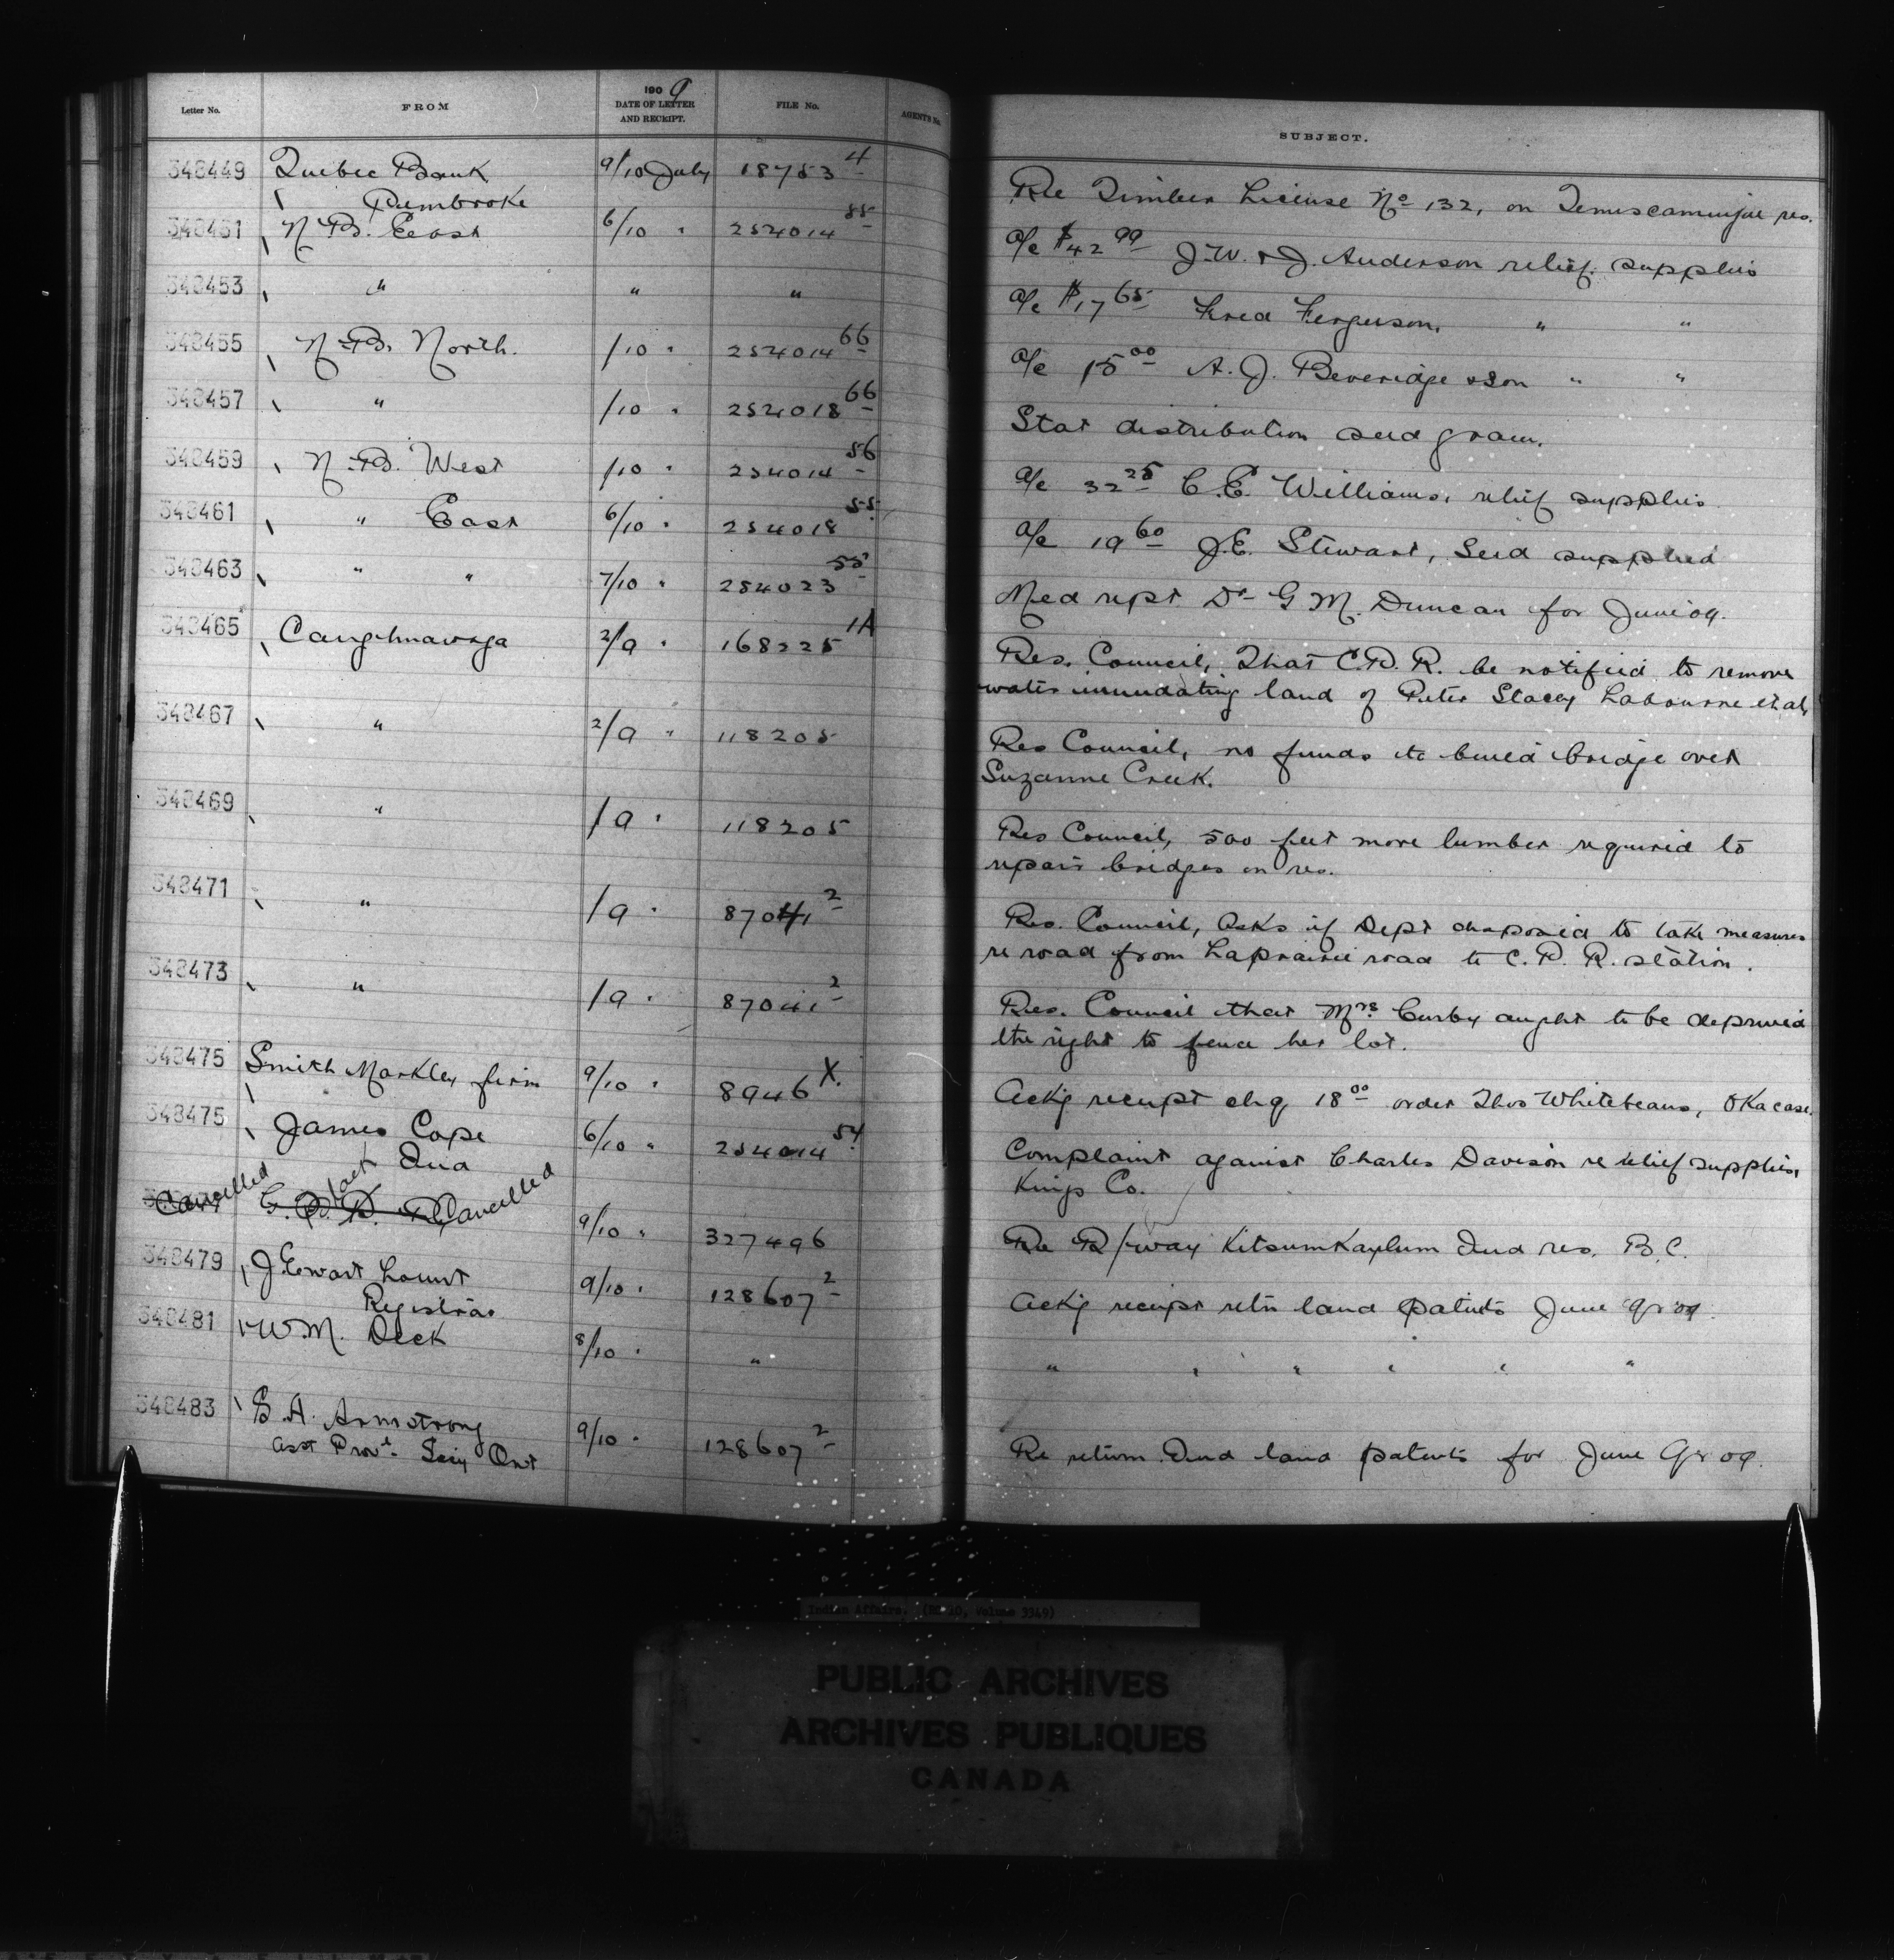 Letter No. FROM 1909 DATE OF LETTER AND RECEIPT. FILE No. AGENTS No. SUBJECT.
348449 Quebec Bank 9/10 July 18753 4 Re Timber License No 132, on Temiscamingue res.
Pembroke
348451 N.B. East 6/10 " 254014 55 a/c $42 99 J.W. & J. Anderson relief supplies
348453 " " " a/c $17 65 Fred Ferguson, " "
348455 N.B. North. /10 " 254014 66 a/c 15 00 A. J. Beveridge & Son " "
348457 " /10 " 254018 66 Stat distribution seed grain.
348459 N.B. West /10 " 254014 56 a/c 32 25 C.E. Williams, relief supplies
348461 " East 6/10 " 254018 55 a/c 19 60 J.E. Stewart, Seed supplied
348463 " " 7/10 " 254023 55 Med rept Dr G M. Duncan for June 09.
348465 Caughnawaga 2/9 " 168225 1A Res. Council, That C.P.R. be notified to remove
water inundating land of Peter Stacey
348467 " 2/9 " 118205 Res Council, no funds to build bridge over
Suzanne Creek.
348469 " /9 " 118205 Res Council, 500 feet more lumber required to
repair bridges on res.
348471 " /9 " 87041 2 Res. Council, asks if Dept disposed to take measures
re road from Laprairie road to C. P. R. station.
348473 " /9 " 87041 2 Res. Council that Mrs Curby aught to be deprived
the right to fence her lot.
348475 Smith Markley firm 9/10 " 8946 X. Ackg receipt chq 18 00 order Thos Whitebeans, Oka case.
348475 James Cope 6/10 " 254014 54 Complaint against Charles Davison re relief supplies,
Ind Kings Co.
Cancelled G. P. R. Cancelled 9/10 " 327496 Re R/way Kitsumkaylum Ind res. B.C.
348479 J. Ewart Lount 9/10 " 128607 2 Ackg receipt retn land patents June qr 09.
Registrar
348481 W M. Deck 8/10 " " " " " " " "
348483 S. A. Armstrong 9/10 " 128607 2 Re return Ind land patents for June Qr 09.
asst Provl. Secy Ont
Indian Affairs. (RG 10, Volume 3349)
PUBLIC ARCHIVES
ARCHIVES PUBLIQUES
CANADA